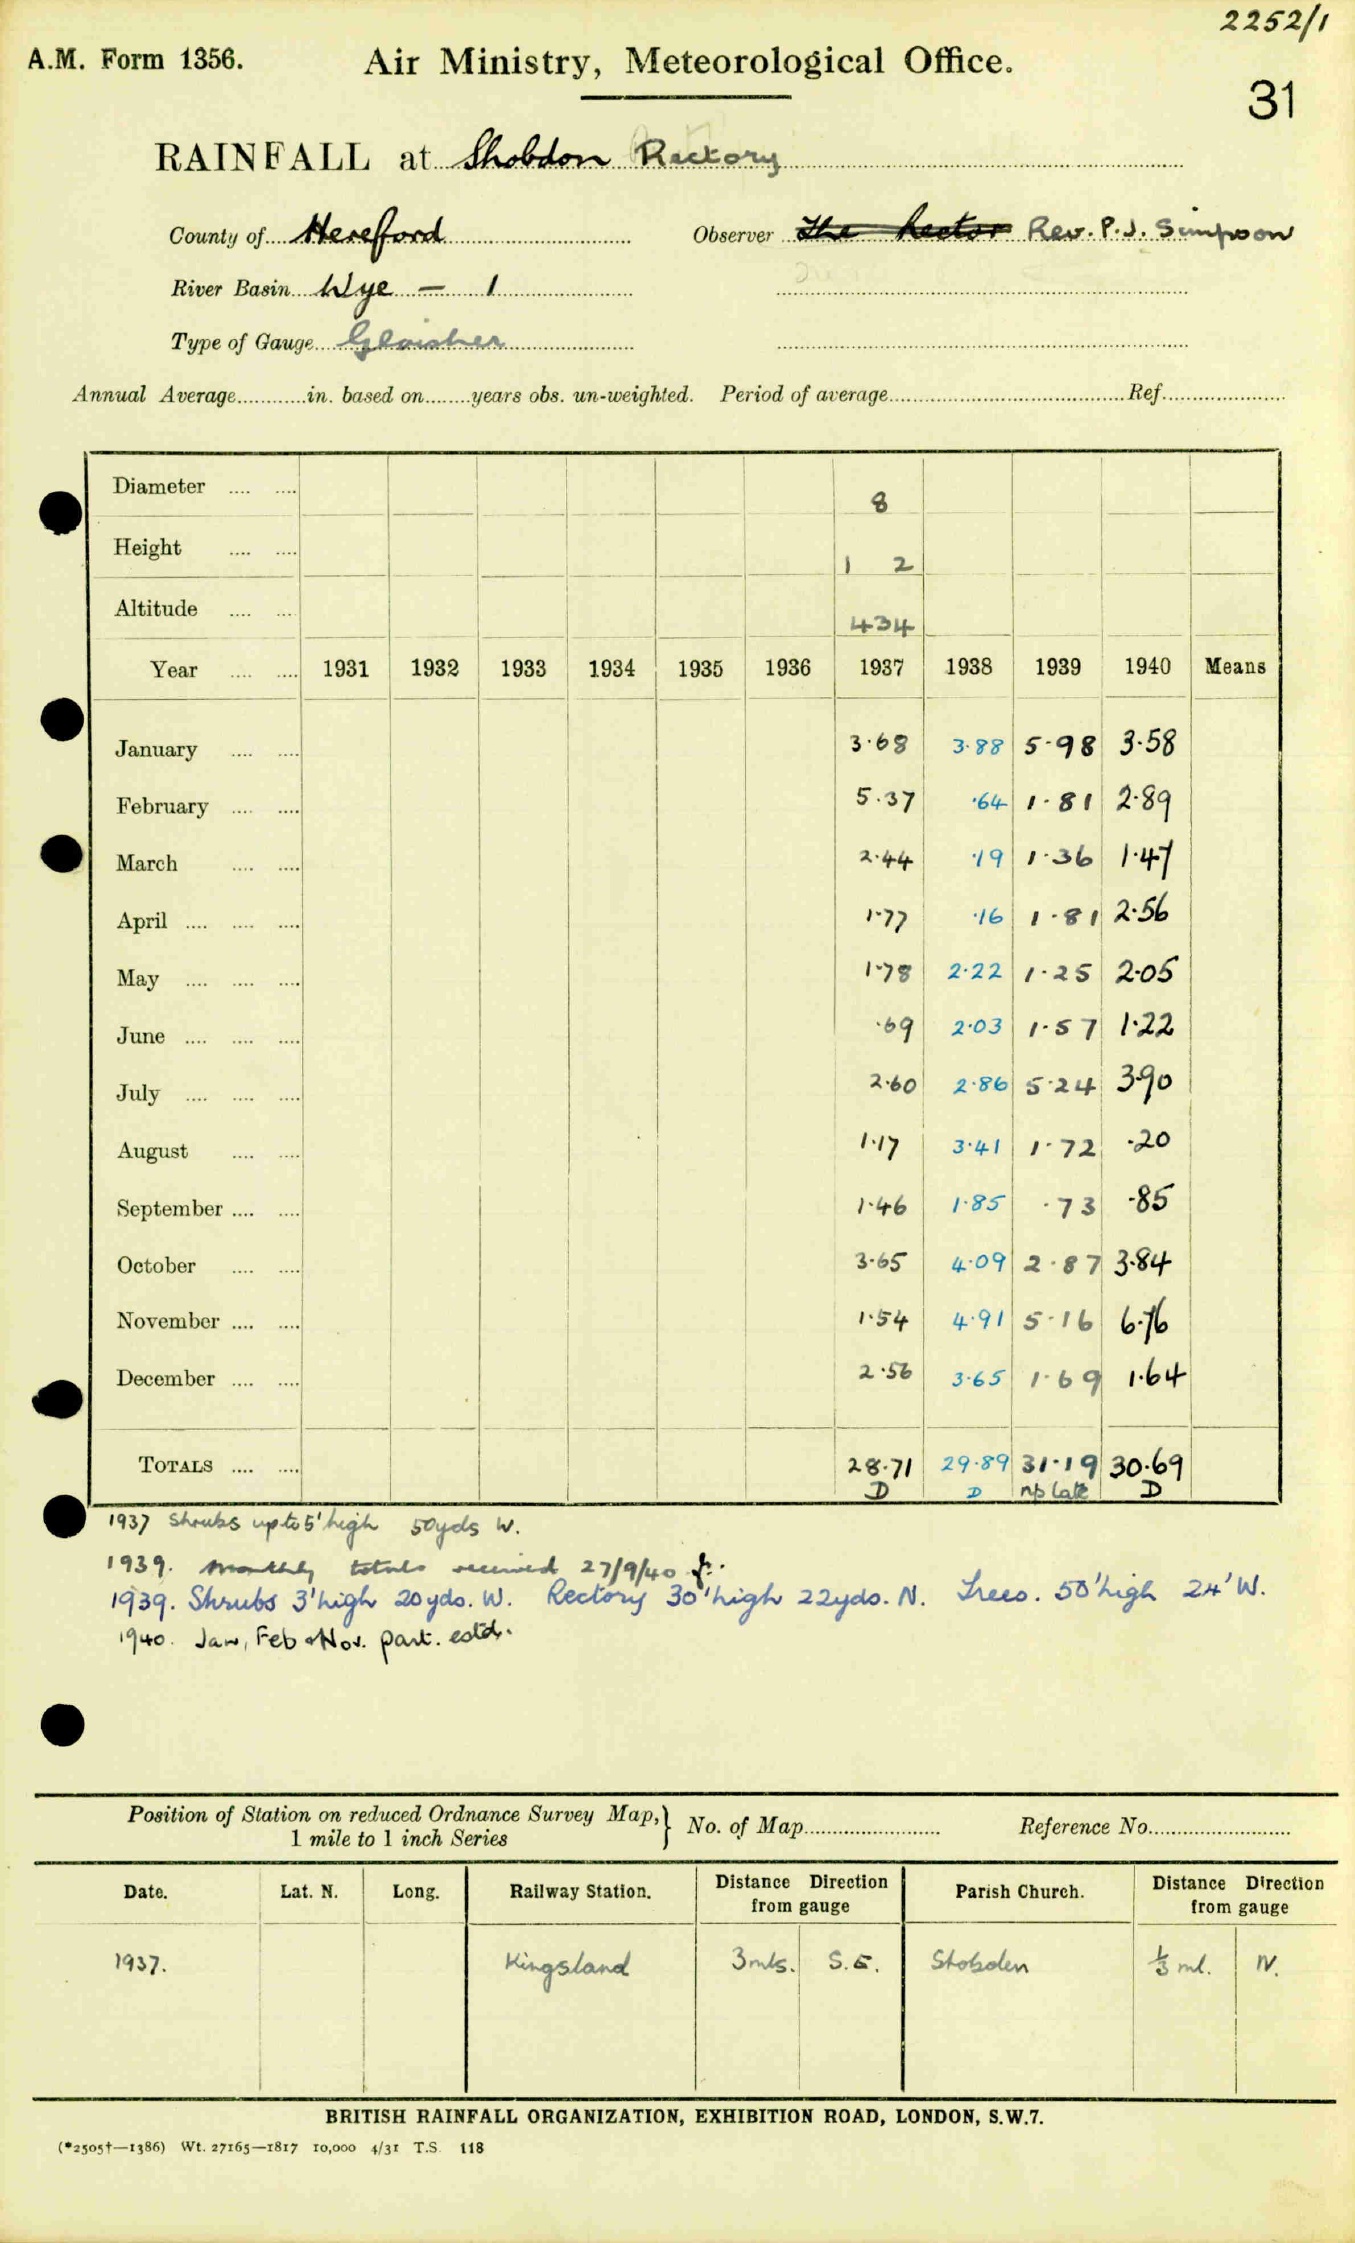 2252/1
A.M. Form 1356. Air Ministry, Meteorological Office.
31
RAINFALL at Shobdon Rectory
County of Hereford Observer The Rector Rev. P. J. Simpson
River Basin Wye — 1
Type of Gauge Glaisher
Annual Average in. based on years obs. un-weighted. Period of average Ref.
Diameter 8
Height 1 2
Altitude 434
Year 1931 1932 1933 1934 1935 1936 1937 1938 1939 1940 Means
January 3.68 3.88 5.98 3.58
February 5.37 .64 1.81 2.89
March 2.44 .19 1.36 1.47
April 1.77 .16 1.81 2.56
May 1.78 2.22 1.25 2.05
June .69 2.03 1.57 1.22
July 2.60 2.86 5.24 3.90
August 1.17 3.41 1.72 .20
September 1.46 1.85 .73 .85
October 3.65 4.09 2.87 3.84
November 1.54 4.91 5.16 6.76
December 2.56 3.65 1.69 1.64
TOTALS 28.71 29.89 31.19 30.69
D D np late D
1937 Shrubs up to 5' high 50yds W.
1939. Monthly totals received 27/9/40
1939. Shrubs 3' high 20yds. W. Rectory 30' high 22yds. N. Trees. 50' high 24' W.
1940. Jan, Feb & Nov. part. estd.
Position of Station on reduced Ordnance Survey Map, 1 mile to 1 inch Series } No. of Map Reference No.
Date. Lat. N. Long. Railway Station. Distance Direction from gauge Parish Church. Distance Direction from gauge
1937. Kingsland 3mls. S.E. Shobden ⅓ ml. N.
BRITISH RAINFALL ORGANIZATION, EXHIBITION ROAD, LONDON, S.W.7.
(*2505†—1386) Wt. 27165—1817 10,000 4/31 T.S. 118